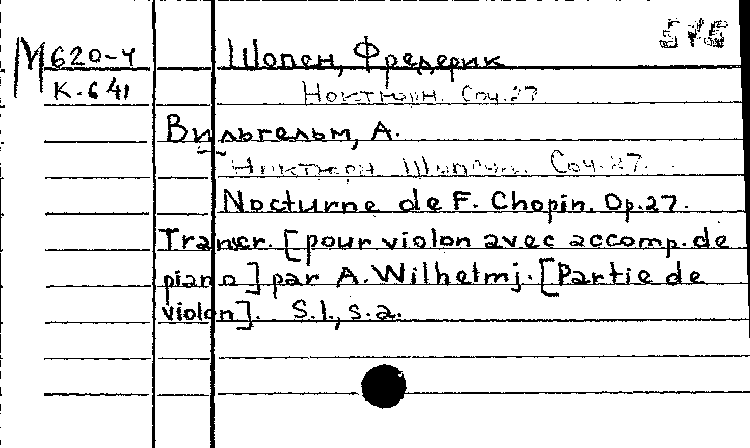 М 620-4 Шопен, Фредерик
К-641 Ноктюрн. Соч. 27
Вильгельм, А.
Ноктюрн Шопена. Соч. 27.
Nocturne de F. Chopin. Op. 27.
Transcr. [pour violon avec accomp. de
piano] par A. Wilhelmj. [Partie de
violon]. S.l., s.a.